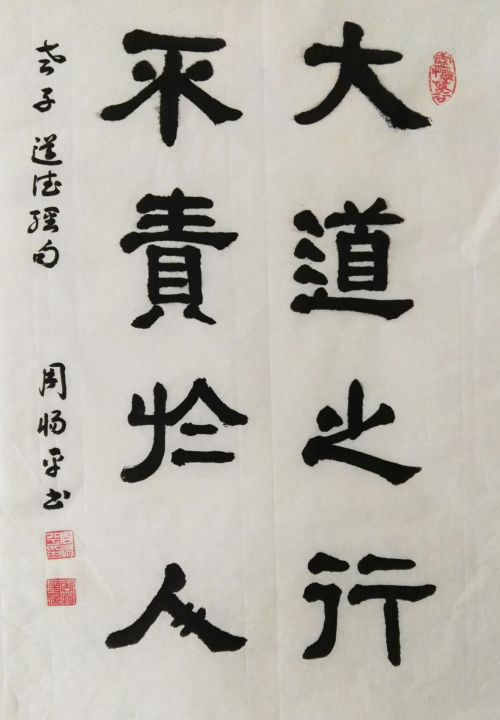 大道之行
不責於人
老子道德經句
周楊平書